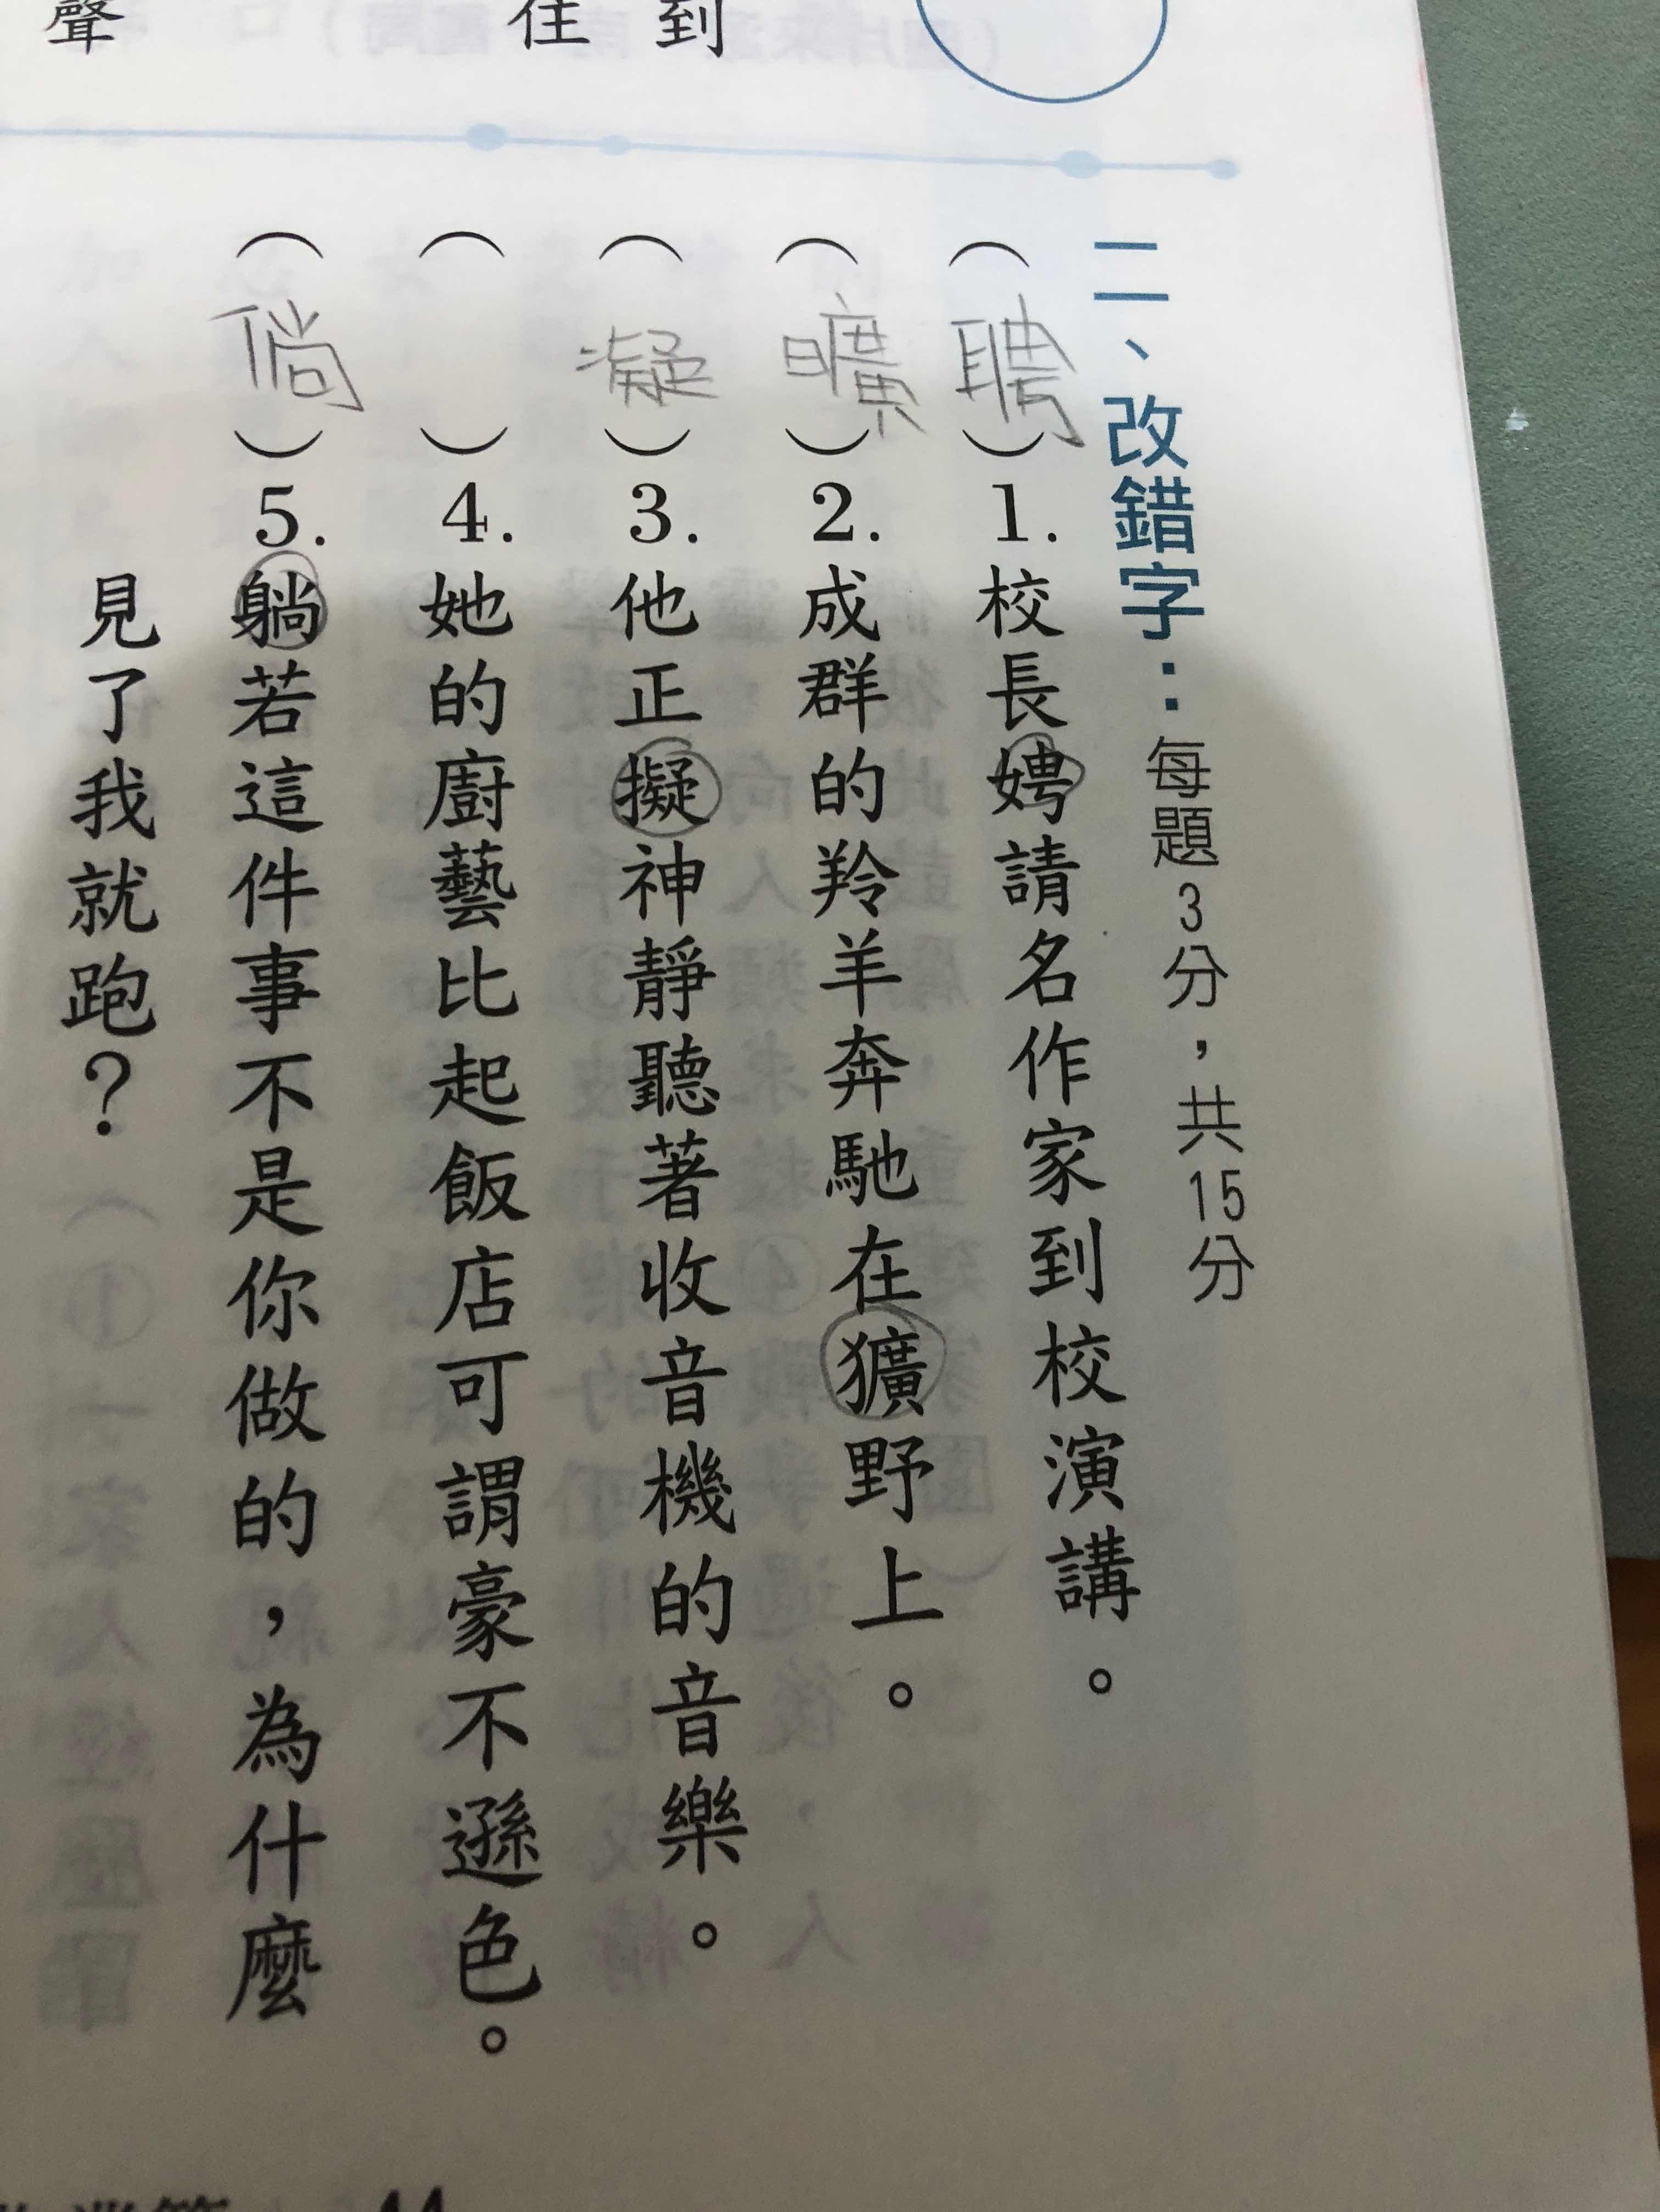 到
住
聲
二、改錯字：每題3分，共15分
（聘）1.校長娉請名作家到校演講。
（曠）2.成群的羚羊奔馳在獷野上。
（凝）3.他正擬神靜聽著收音機的音樂。
（　）4.她的廚藝比起飯店可謂豪不遜色。
（倘）5.躺若這件事不是你做的，為什麼
見了我就跑？